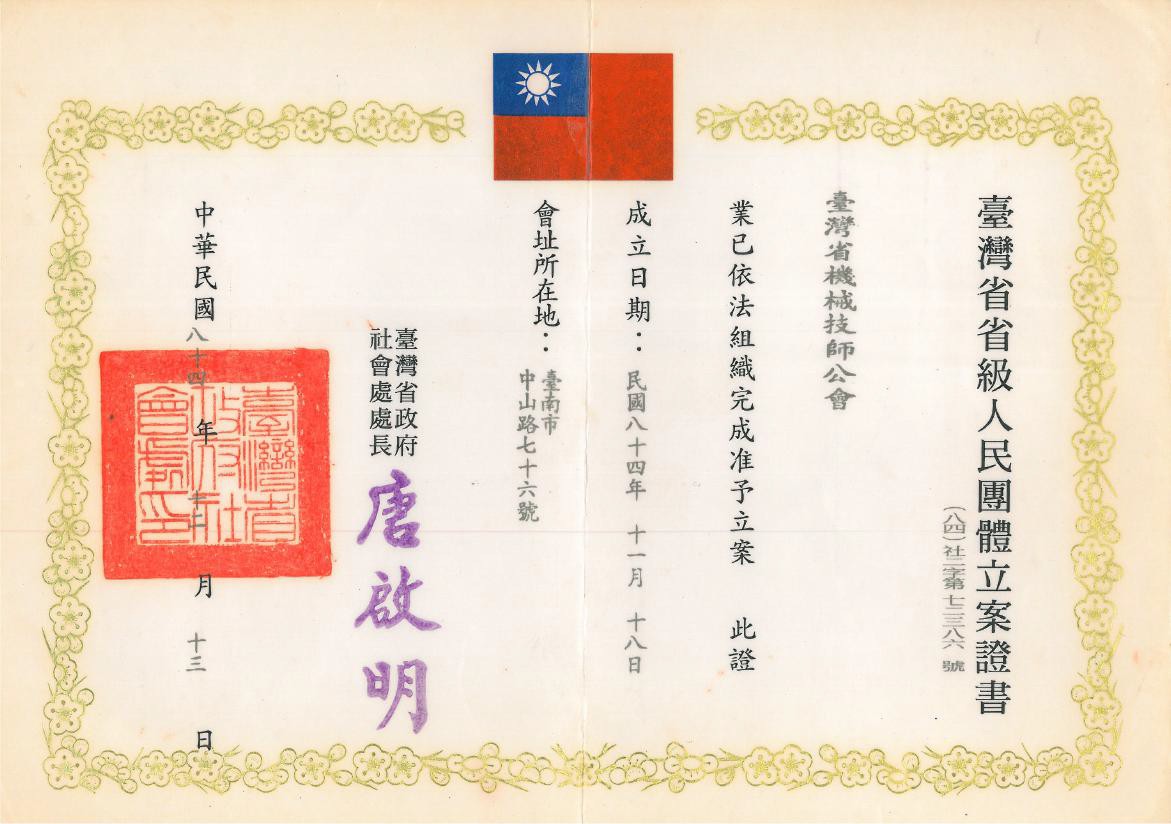 臺灣省省級人民團體立案證書
(八四)社二字第七二三八六 號
臺灣省機械技師公會
業已依法組織完成准予立案 此證
成立日期：民國八十四年 十一月 十八日
會址所在地：臺南市
中山路七十六號
臺灣省政府
社會處處長
唐啟明
中華民國八十四年 十二月 十三日
臺灣省
政府社
會處印